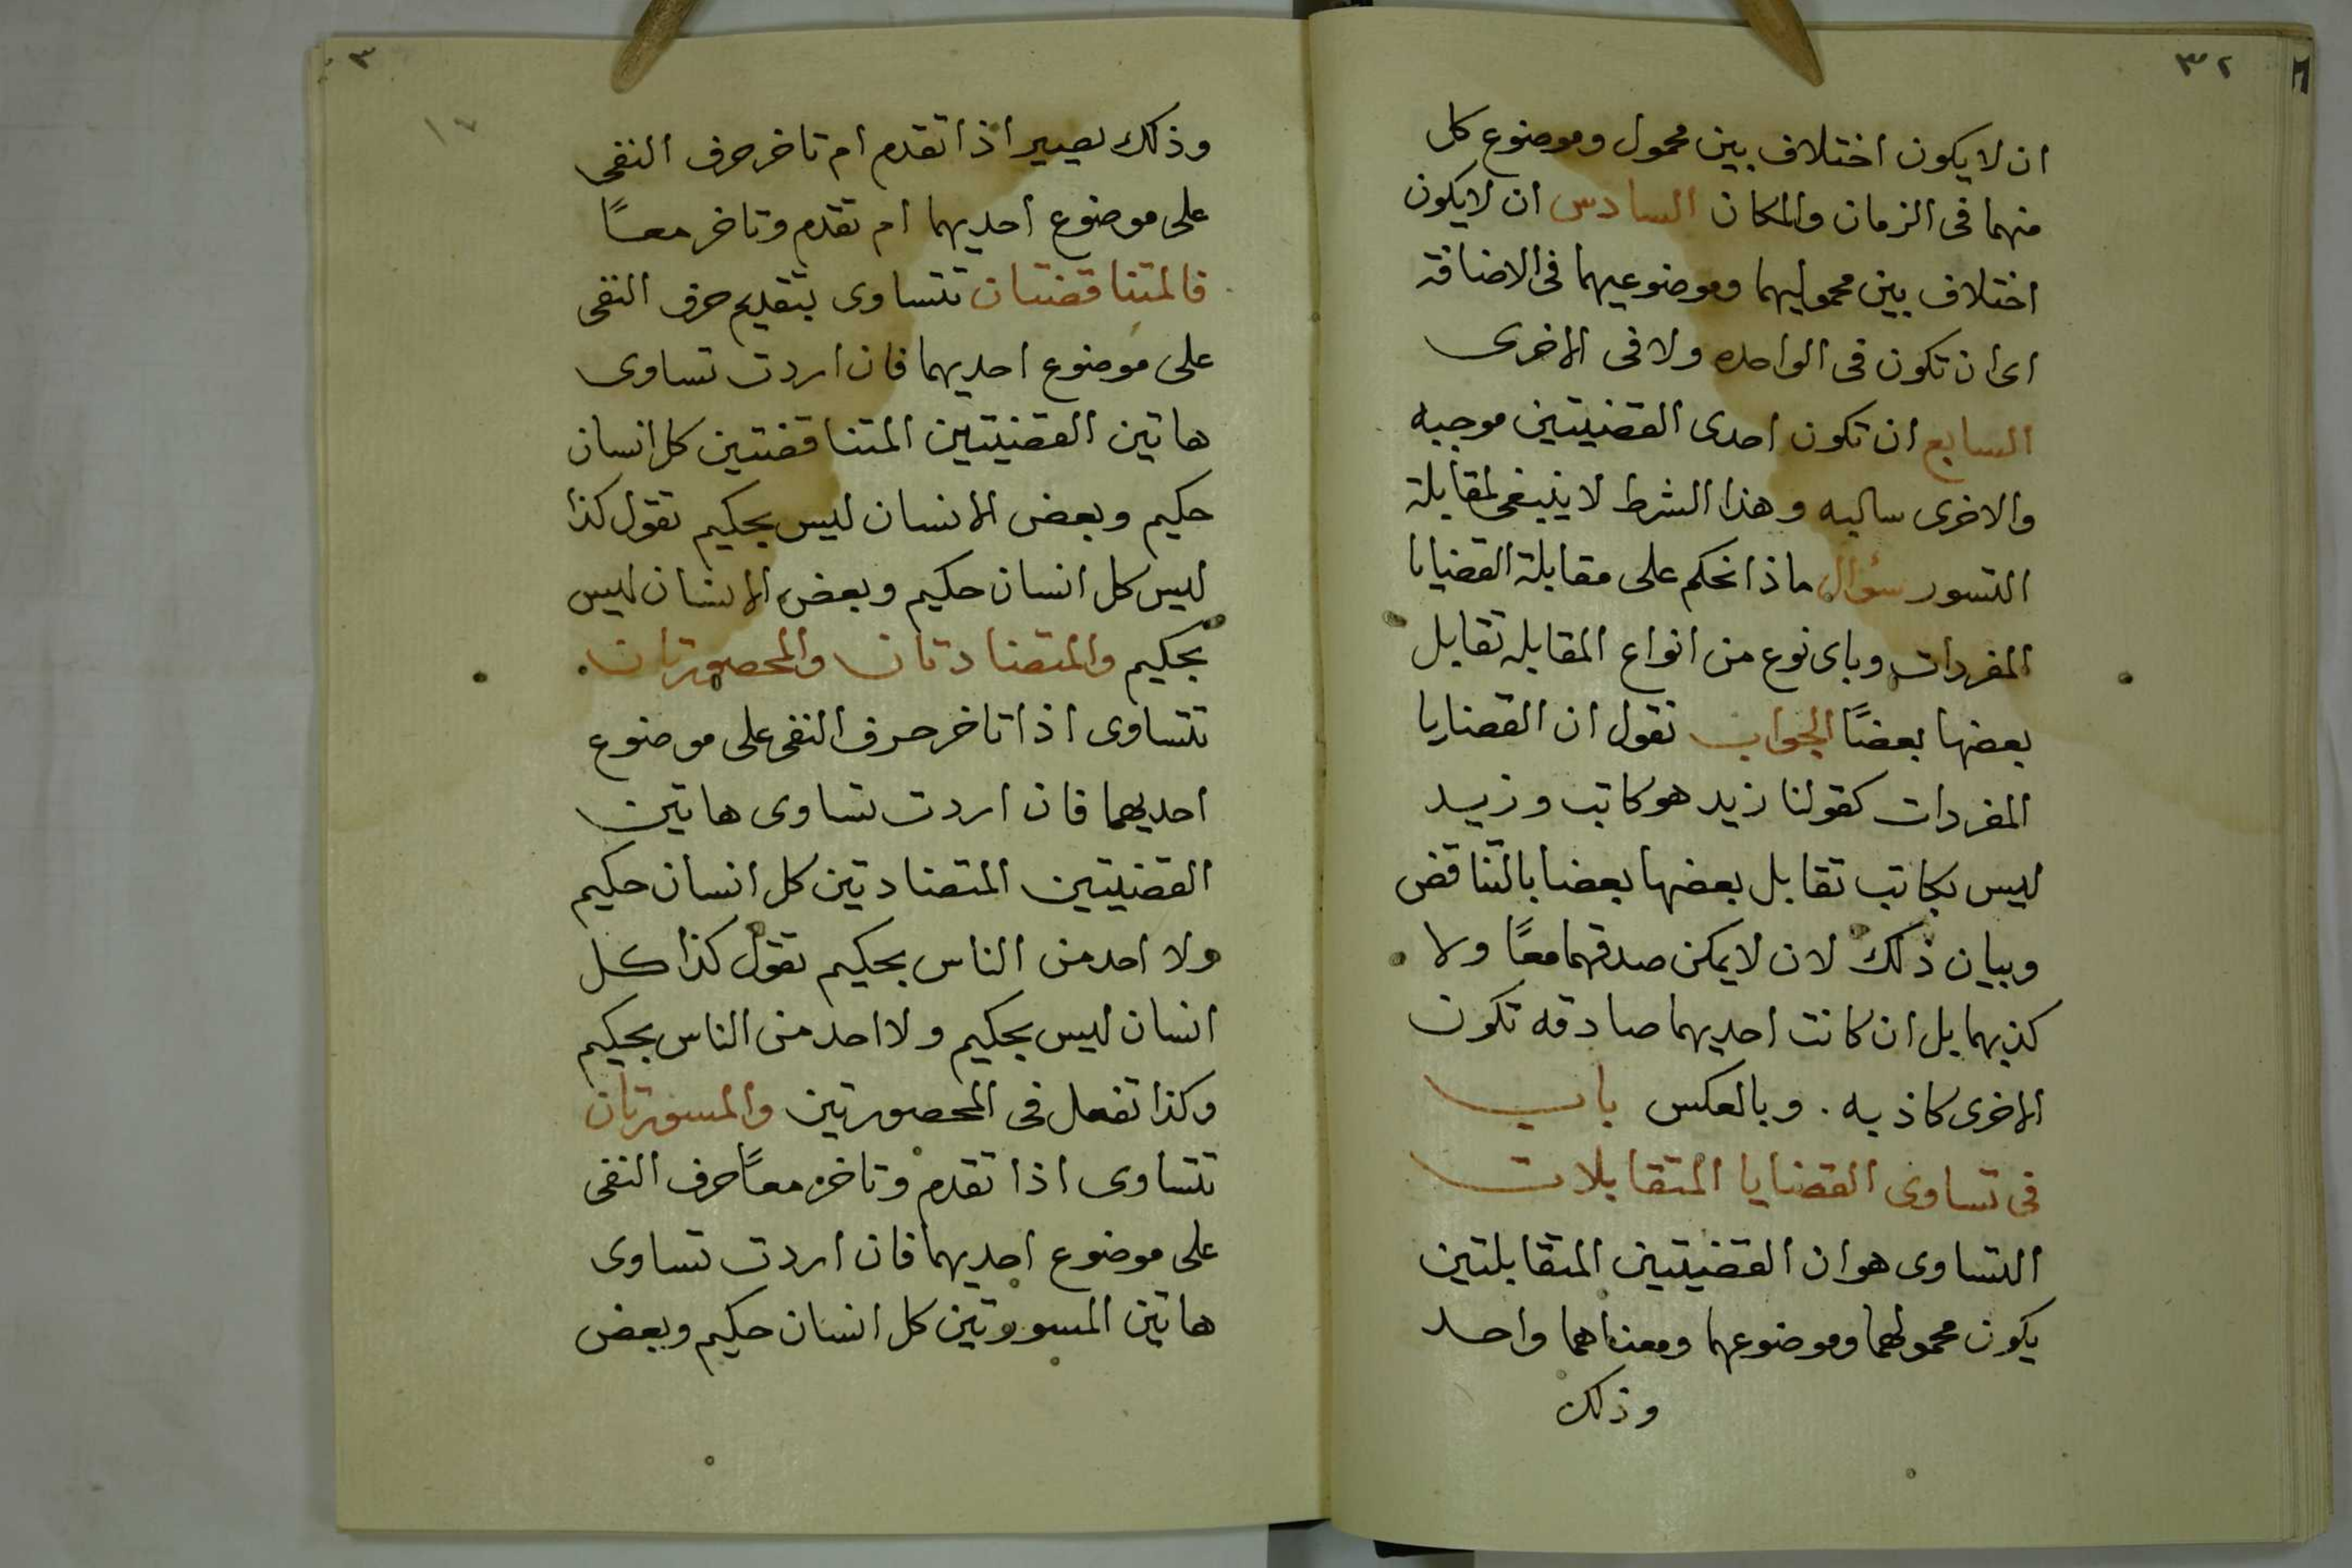 ٣٢
ان لا يكون اختلاف بين محمول وموضوع كل
منهما فى الزمان والمكان السادس ان لا يكون
اختلاف بين محموليهما وموضوعيهما فى الاضافة
اى ان تكون فى الواحده ولا فى الاخرى
السابع ان تكون احدى القضيتين موجبه
والاخرى سالبه وهذا الشرط لا ينبغى لمقابلة
التسور سؤال ماذا نحكم على مقابلة القضايا
المفردات وباى نوع من انواع المقابله تقابل
بعضها بعضًا الجواب نقول ان القضايا
المفردات كقولنا زيد هو كاتب وزيد
ليس بكاتب تقابل بعضها بعضا بالتناقض
وبيان ذلك لان لا يمكن صدقهما معًا ولا
كذبهما بل ان كانت احديهما صادقه تكون
الاخرى كاذبه . وبالعكس باب
فى تساوى القضايا المتقابلات
التساوى هو ان القضيتين المتقابلتين
يكون محمولهما وموضوعهما ومعناهما واحد
وذلك
٣
وذلك يصير اذا تقدم ام تاخر حرف النفى
على موضوع احديهما ام تقدم وتاخر معًا
فالمتناقضتان تتساوى بتقديم حرف النفى
على موضوع احديهما فان اردت تساوى
هاتين القضيتين المتناقضتين كل انسان
حكيم وبعض الانسان ليس بحكيم تقول كذا
ليس كل انسان حكيم وبعض الانسان ليس
بحكيم والمتضادتان والمحصورتان
تتساوى اذا تاخر حرف النفى على موضوع
احديهما فان اردت تساوى هاتين
القضيتين المتضادتين كل انسان حكيم
ولا احد من الناس بحكيم تقول كذا كل
انسان ليس بحكيم ولا احد من الناس بحكيم
وكذا تفعل فى المحصورتين والمسورتان
تتساوى اذا تقدم وتاخر معًا حرف النفى
على موضوع احديهما فان اردت تساوى
هاتين المسورتين كل انسان حكيم وبعض